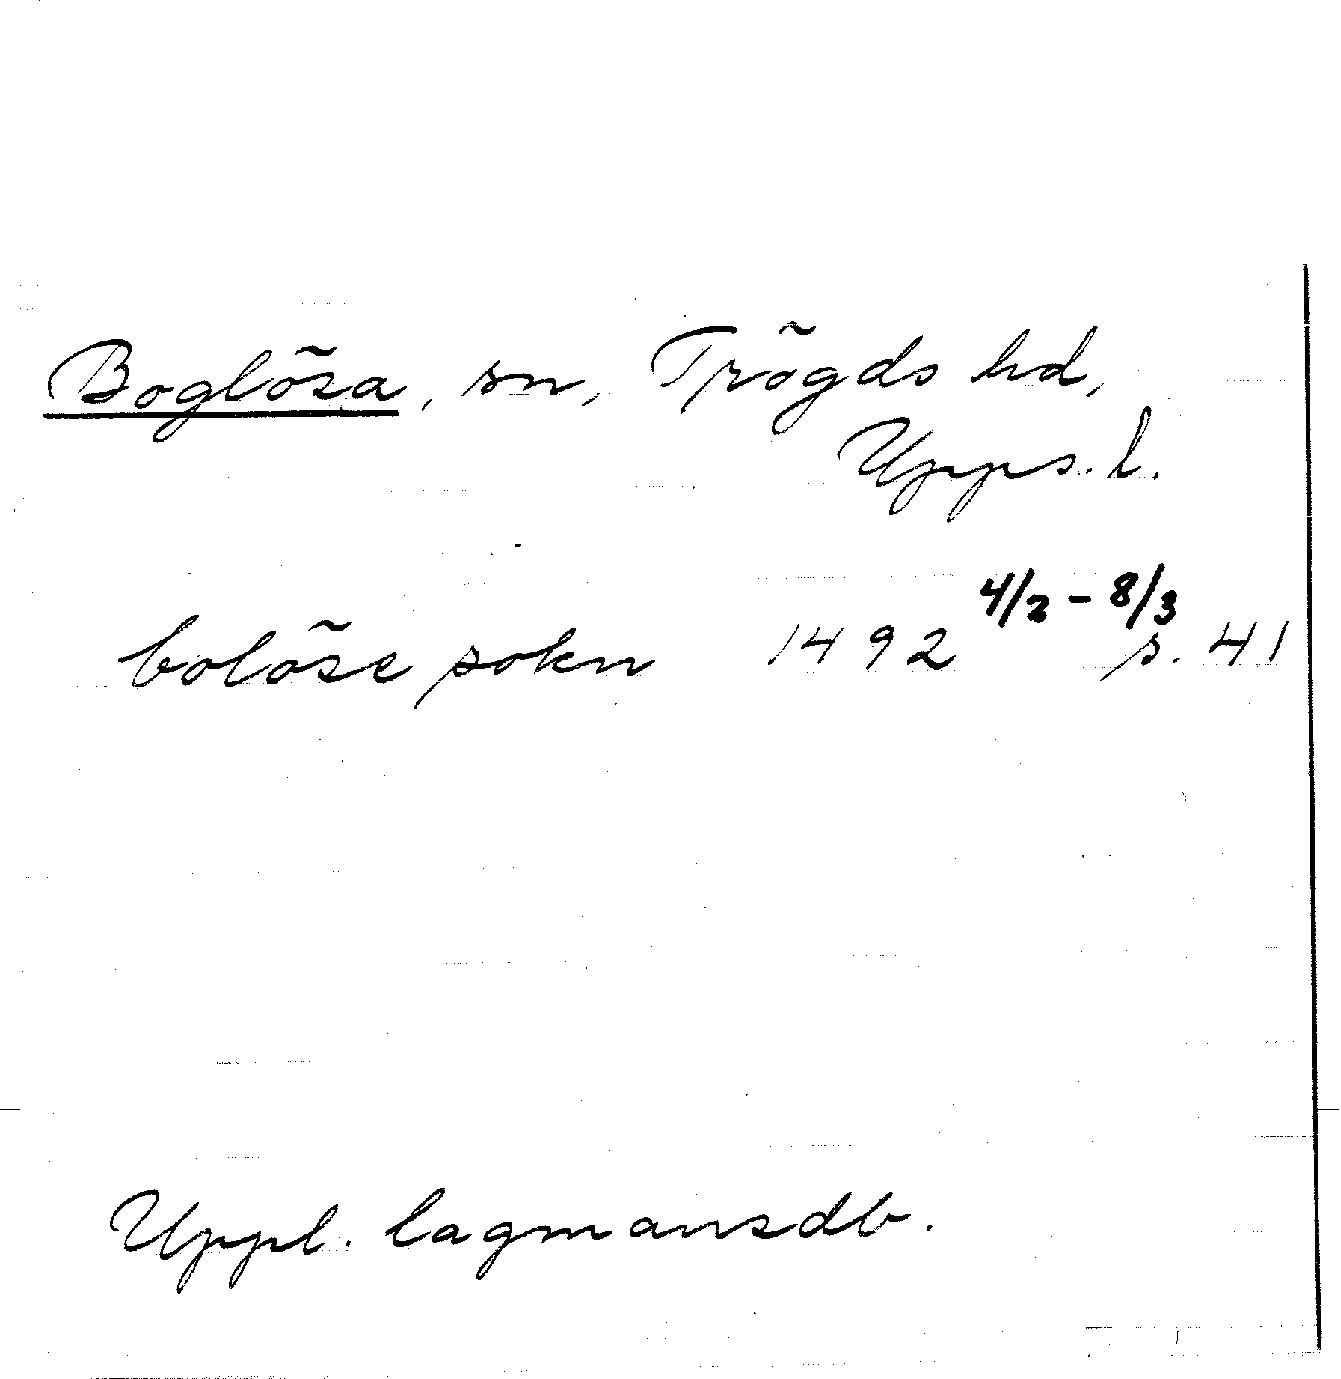 Boglösa, sn, Trögds hd,
Upps. l.
bolöse sokn 1492 4/2 - 8/3 s. 41
Uppl. lagmansdb.